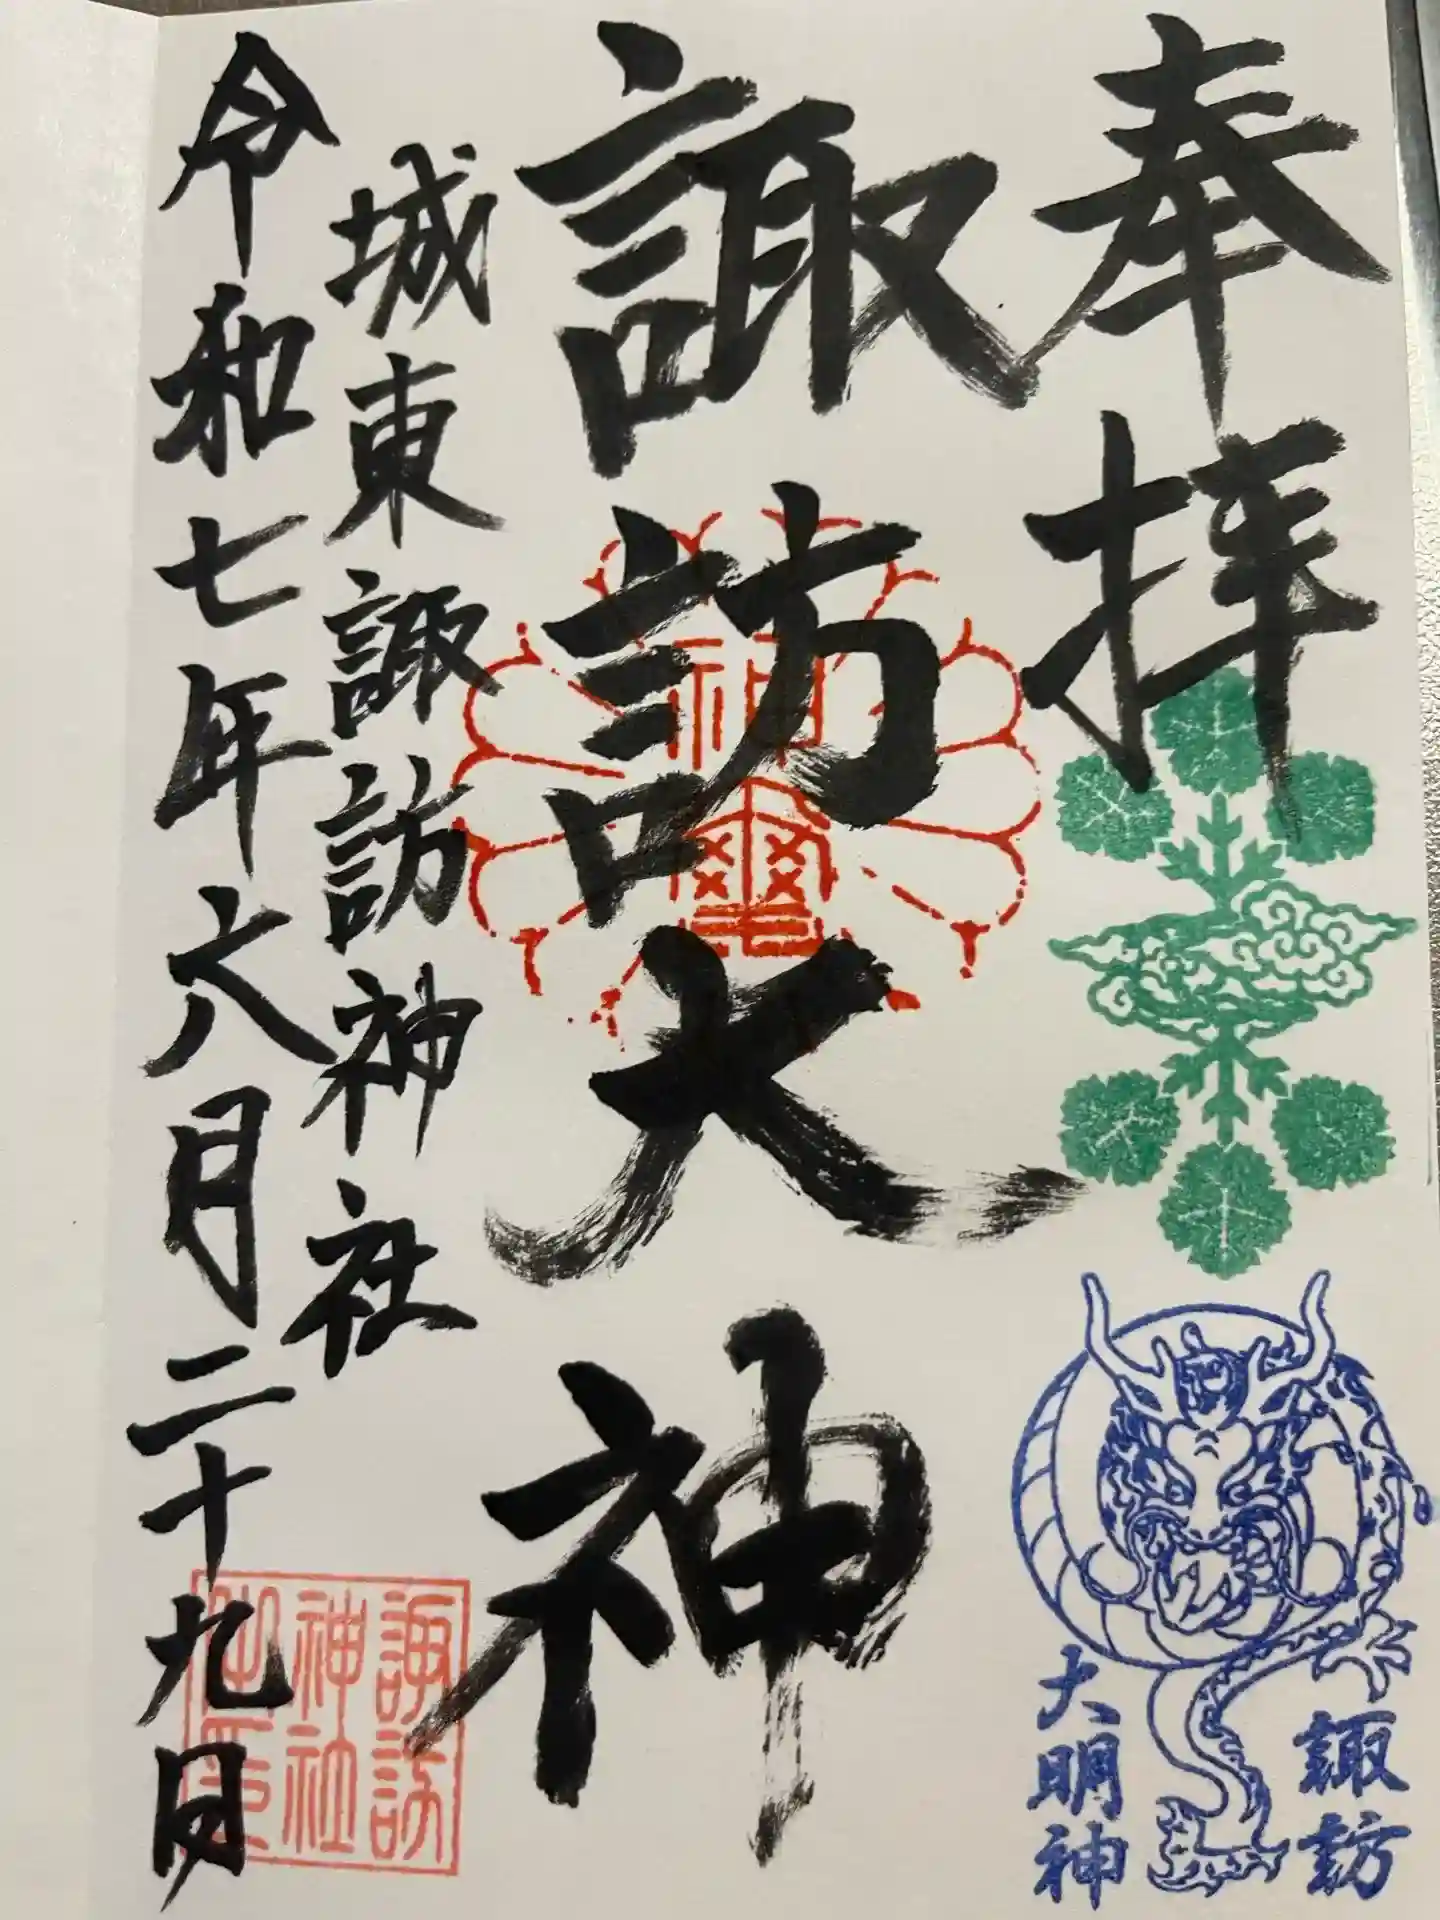 奉拝
諏訪大神
城東諏訪神社
令和七年六月二十九日
神璽
諏訪
神社
諏訪
大明神